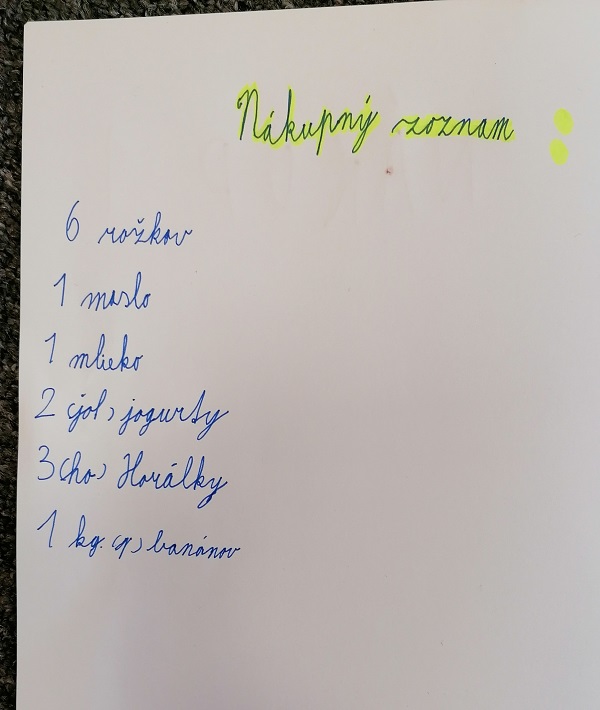 Nákupný zoznam :
6 rožkov
1 maslo
1 mlieko
2 (jol) jogurty
3 (ho) Horálky
1 kg. (q) banánov